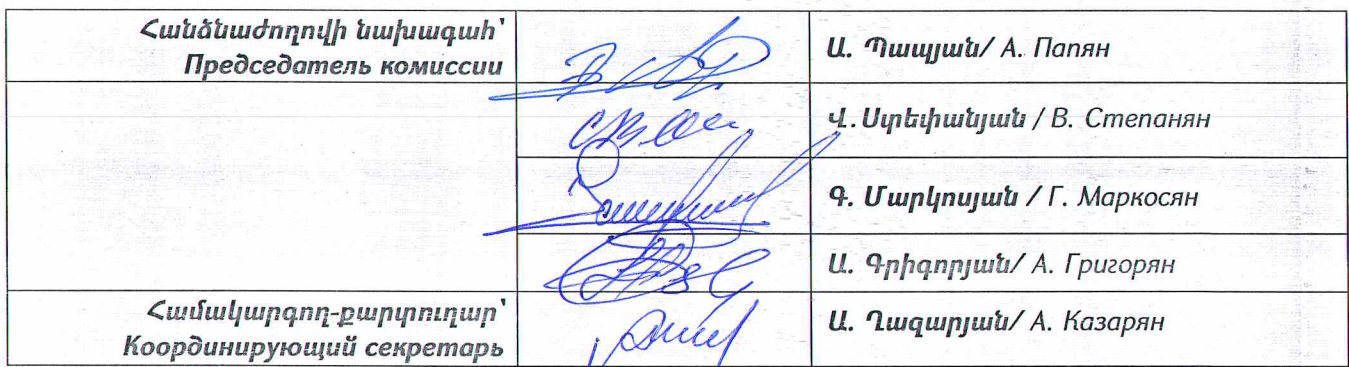 Հանձնաժողովի նախագահ՝
Председатель комиссии
Ա. Պապյան/ А. Папян
Վ. Ստեփանյան / В. Степанян
Գ. Մարկոսյան / Г. Маркосян
Ա. Գրիգորյան/ А. Григорян
Համակարգող-քարտուղար՝
Координирующий секретарь
Ա. Ղազարյան/ А. Казарян